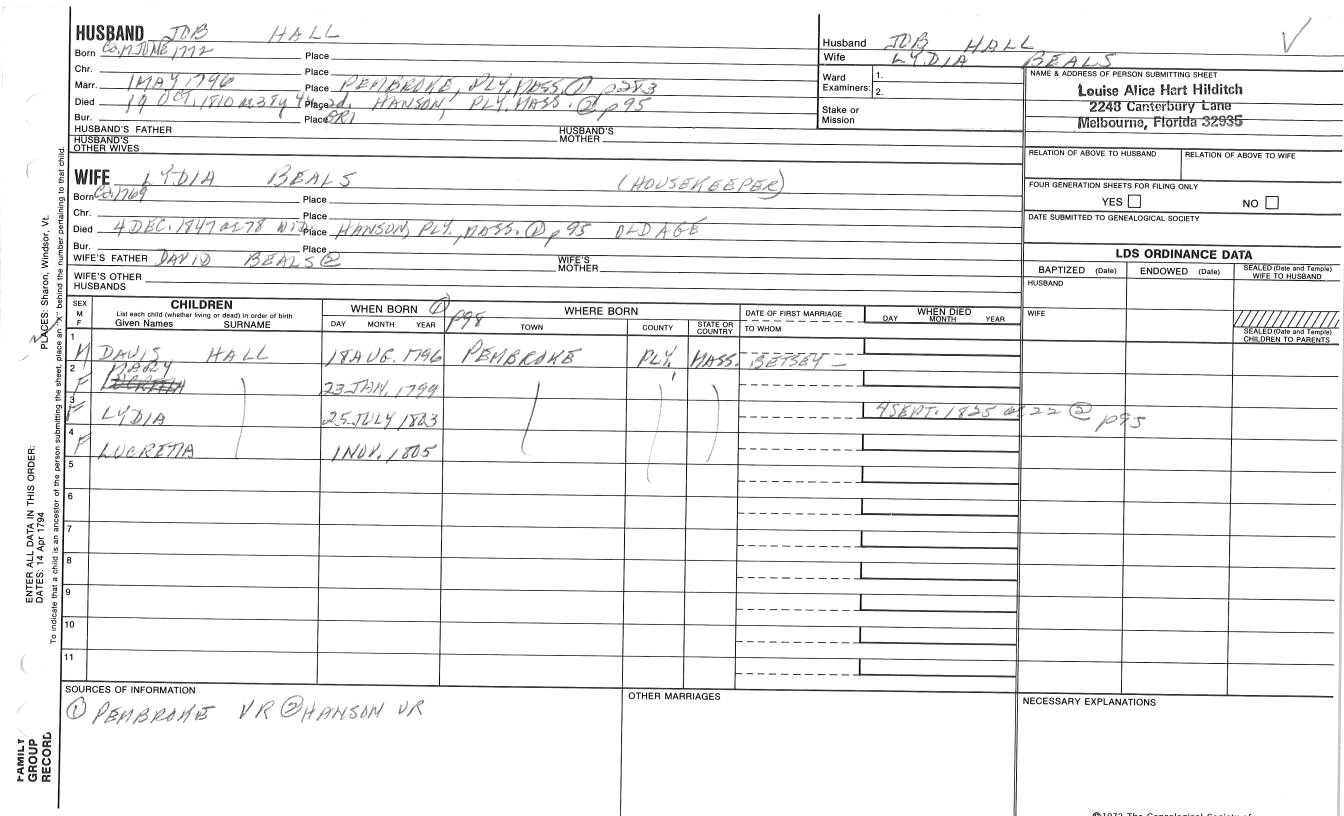 HUSBAND JOB HALL
Born Ca. 17 JUNE 1772 Place
Chr. Place
Marr. 1 MAY 1796 Place PEMBROKE, PLY, MASS. ① p283
Died 19 OCT. 1810 ae 38y 4m 2d. Place HANSON, PLY. MASS. ② p95
Bur. Place GR1
HUSBAND'S FATHER HUSBAND'S MOTHER
HUSBAND'S OTHER WIVES
WIFE LYDIA BEALS (HOUSEKEEPER)
Born Ca. 1769 Place
Chr. Place
Died 4 DEC. 1847 ae 78 WID. Place HANSON, PLY., MASS. ② p95 OLD AGE
Bur. Place
WIFE'S FATHER DAVID BEALS ② WIFE'S MOTHER
WIFE'S OTHER HUSBANDS
Husband JOB HALL
Wife LYDIA BEALS
Ward Examiners: 1. 2.
Stake or Mission
NAME & ADDRESS OF PERSON SUBMITTING SHEET
Louise Alice Hart Hilditch
2248 Canterbury Lane
Melbourne, Florida 32935
RELATION OF ABOVE TO HUSBAND RELATION OF ABOVE TO WIFE
FOUR GENERATION SHEETS FOR FILING ONLY
YES NO
DATE SUBMITTED TO GENEALOGICAL SOCIETY
LDS ORDINANCE DATA
BAPTIZED (Date) ENDOWED (Date) SEALED (Date and Temple) WIFE TO HUSBAND
HUSBAND
WIFE
SEALED (Date and Temple) CHILDREN TO PARENTS
SEX M F
CHILDREN
List each child (whether living or dead) in order of birth
Given Names SURNAME
WHEN BORN ① p98
DAY MONTH YEAR
WHERE BORN
TOWN COUNTY STATE OR COUNTRY
DATE OF FIRST MARRIAGE
TO WHOM
WHEN DIED
DAY MONTH YEAR
1 M DAVIS HALL 18 AUG. 1796 PEMBROKE PLY. MASS. BETSEY —
2 F MARY 23 JAN. 1799
3 F LYDIA 25 JULY 1803 4 SEPT. 1825 ae 22 ② p95
4 F LUCRETIA 1 NOV. 1805
5
6
7
8
9
10
11
SOURCES OF INFORMATION
① PEMBROKE VR ② HANSON VR
OTHER MARRIAGES
NECESSARY EXPLANATIONS
PLACES: Sharon, Windsor, Vt.
ENTER ALL DATA IN THIS ORDER:
DATES: 14 Apr 1794
To indicate that a child is an ancestor of the person submitting the sheet, place an "X" behind the number pertaining to that child.
FAMILY GROUP RECORD
©1972 The Genealogical Society of